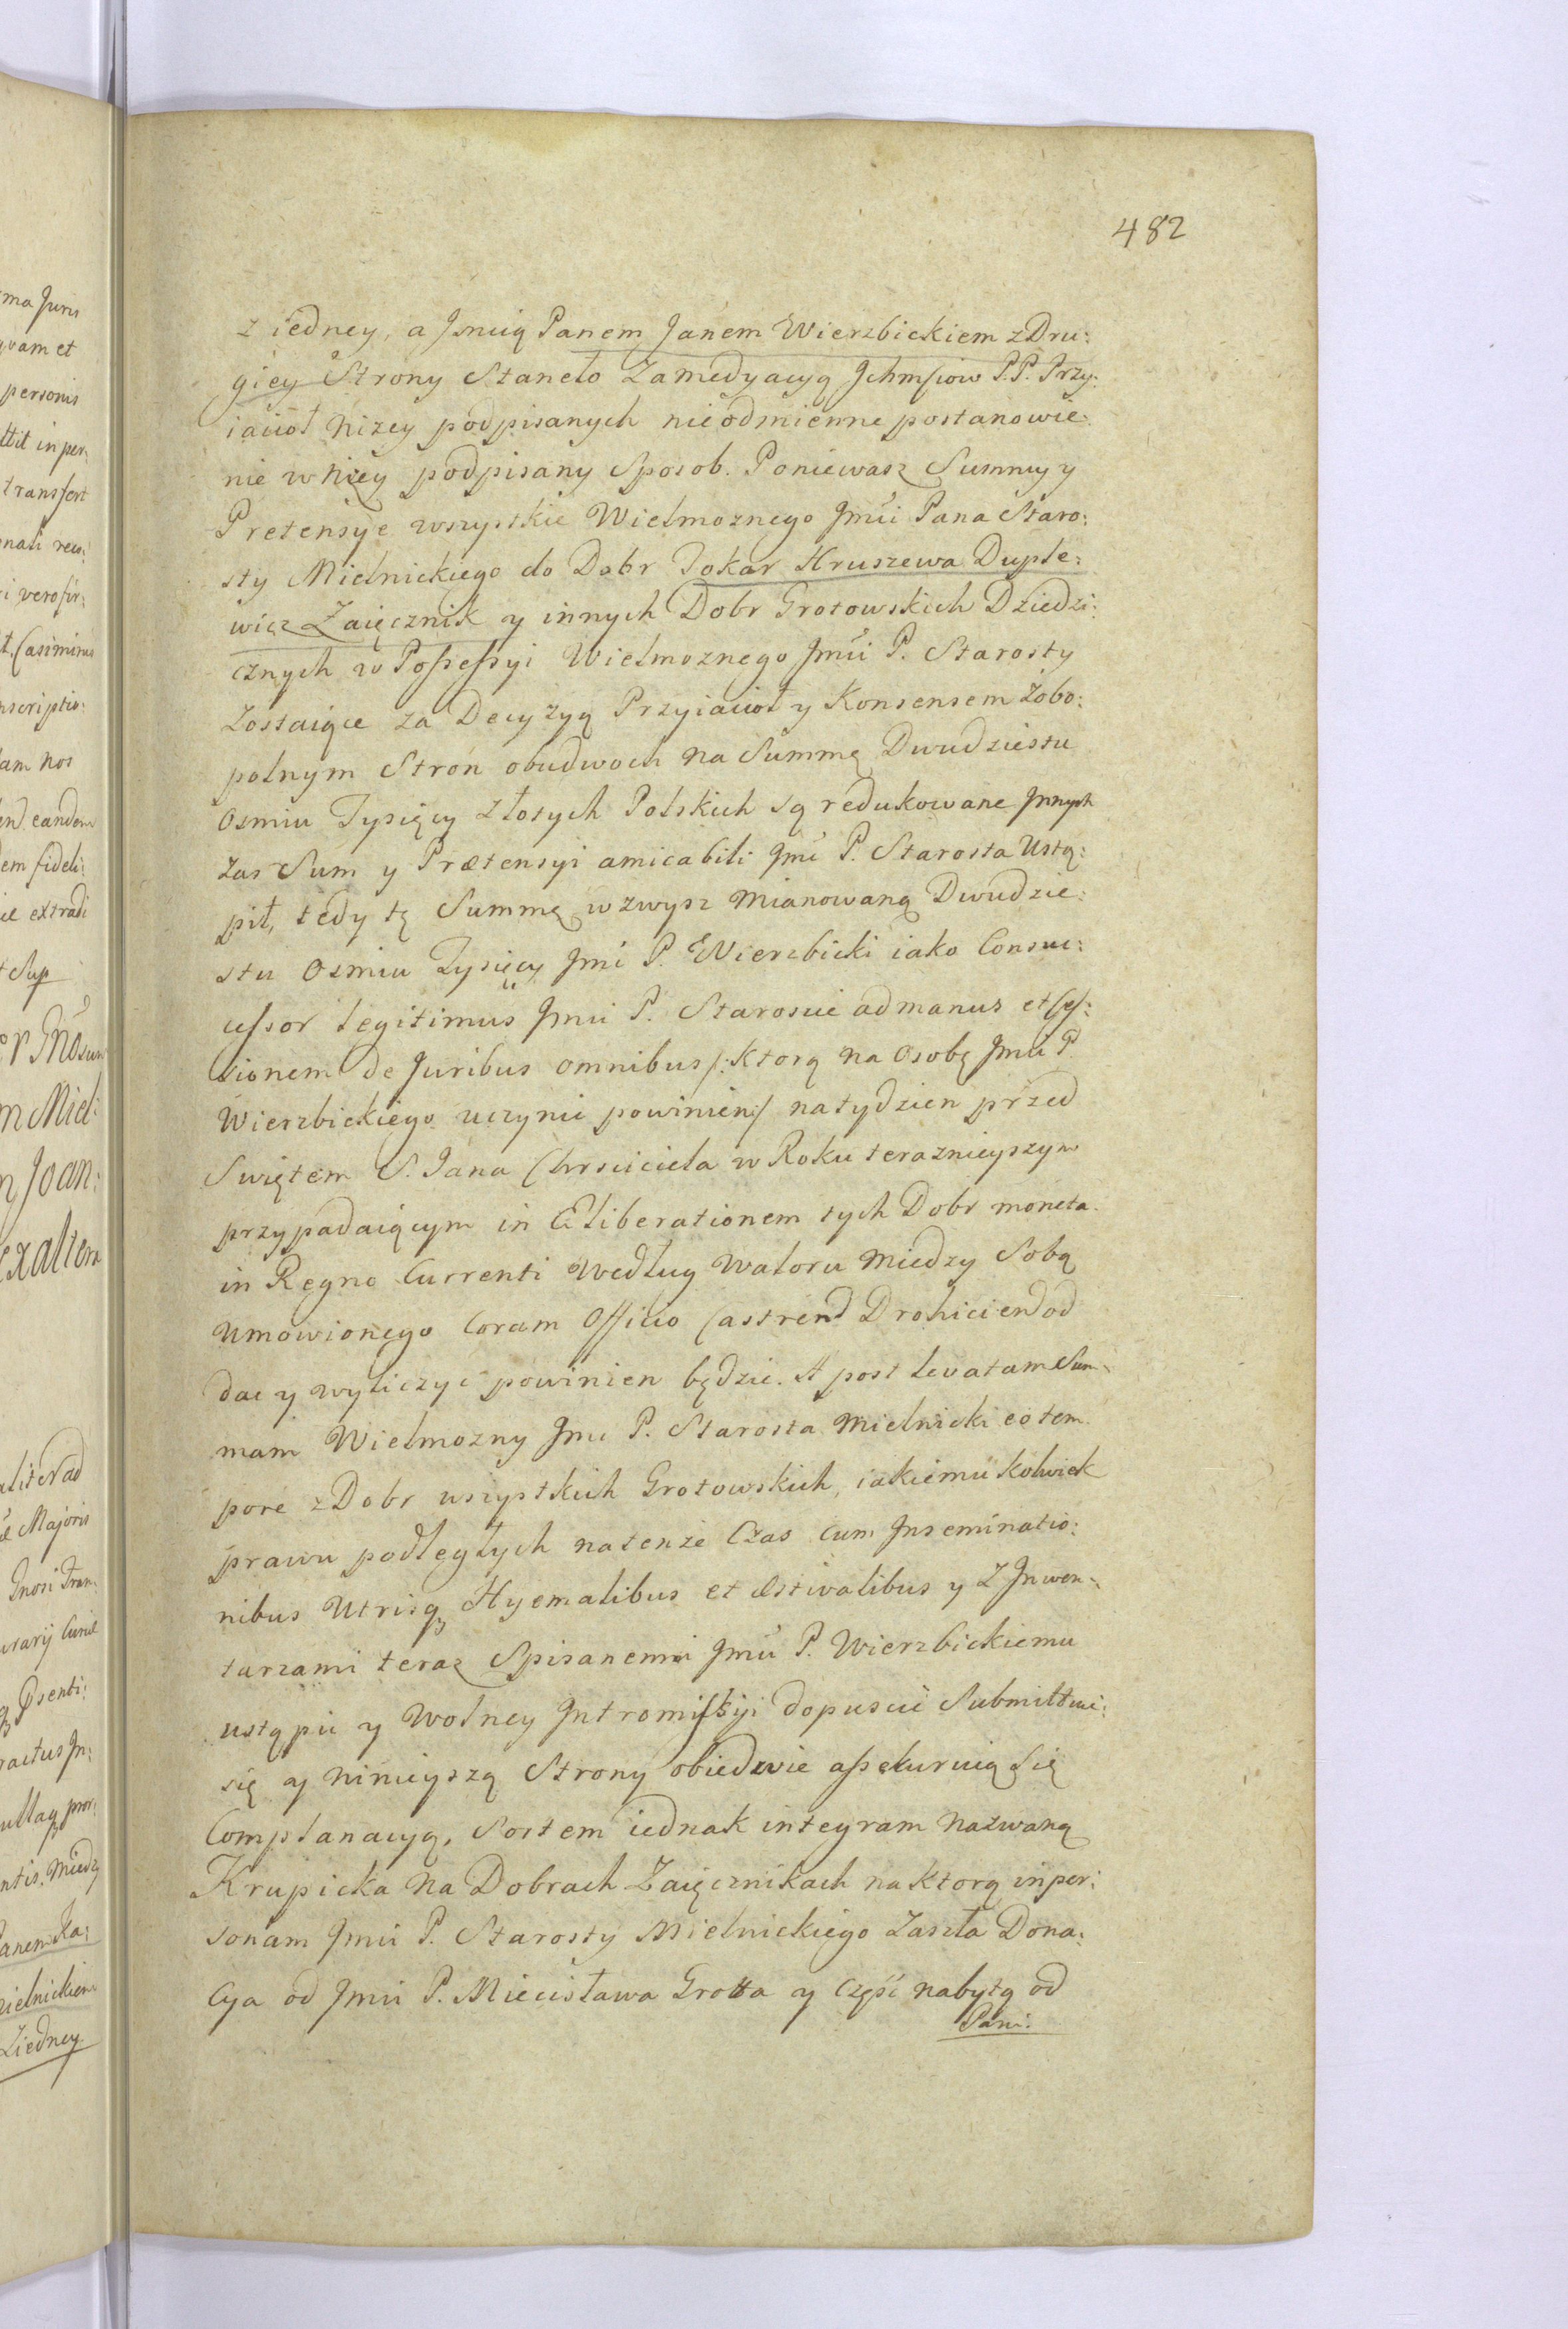 482
z iedney, a Jmcią Panem Janem Wierzbickiem z Dru:
giey Strony Staneło Zamedyacyą Jchmsciow P.P. Przy:
iaciół niżey podpisanych nieodmienne postanowie:
nie w niżey podpisany Sposob. Poniewasz Summy y
Pretensye wszystkie Wielmoznego Jmći Pana Staro:
sty Mielnickiego do Dobr Tokar Hruszewa Duple:
wicz Zaięcznik y innych Dobr Grotowskich Dziedzi:
cznych w Possessyi Wielmoznego Jmći P. Starosty
Zostaiące za Decyzyą Przyiacioł y Konsensem Zobo:
polnym Stron obudwoch na Summę Dwudziestu
Osmiu Tysięcy Złotych Polskich są redukowane Jnnych
Zas Sum y Prætensyi amicabili Jmć P. Starosta Ustą:
pił, tedy tę Summę wzwysz mianowaną Dwudzie:
stu Osmiu Tysięcy Jmć P. Wierzbicki iako Consuc:
cessor legitimus Jmci P. Staroscie ad manus et Ces:
sionem de Juribus omnibus /: Ktorą na Osobę Jmći P.
Wierzbickiego uczynic powinien :/ natydzien przed
Swiętem S. Jana Chrsciciela w Roku terazniejszym
przypadaiącym in Eliberationem tych Dobr moneta
in Regno Currenti według waloru między Sobą
Umowionego Coram Officio Castrend Drohiciend od
dac y wyliczyć powinien będzie. A post levatam Sum:
mam Wielmozny Jmc P. Starosta Mielnicki eo tem
pore z Dobr wszystkich Grotowskich, iakiemu kolwiek
prawu podległych natenże Czas cum Jnseminatio:
nibus Utrisq Hyemalibus et Æstivalibus y Z Jnwen:
tarzami teraz Spisanemi Jmći P. Wierzbickiemu
ustąpic y wolney Jntromissyi dopuscic Submittuie:
się y ninieyszą Strony obiedwie assekuruią Się
Complanacyą, Sortem iednak integram nazwaną
Krupicka na Dobrach Zaięcznikach na ktorą in per:
sonam Jmci P. Starosty Mielnickiego Zaszła Dona:
cya od Jmci P. Miecisława Grotta y Część nabytą od
Pani: